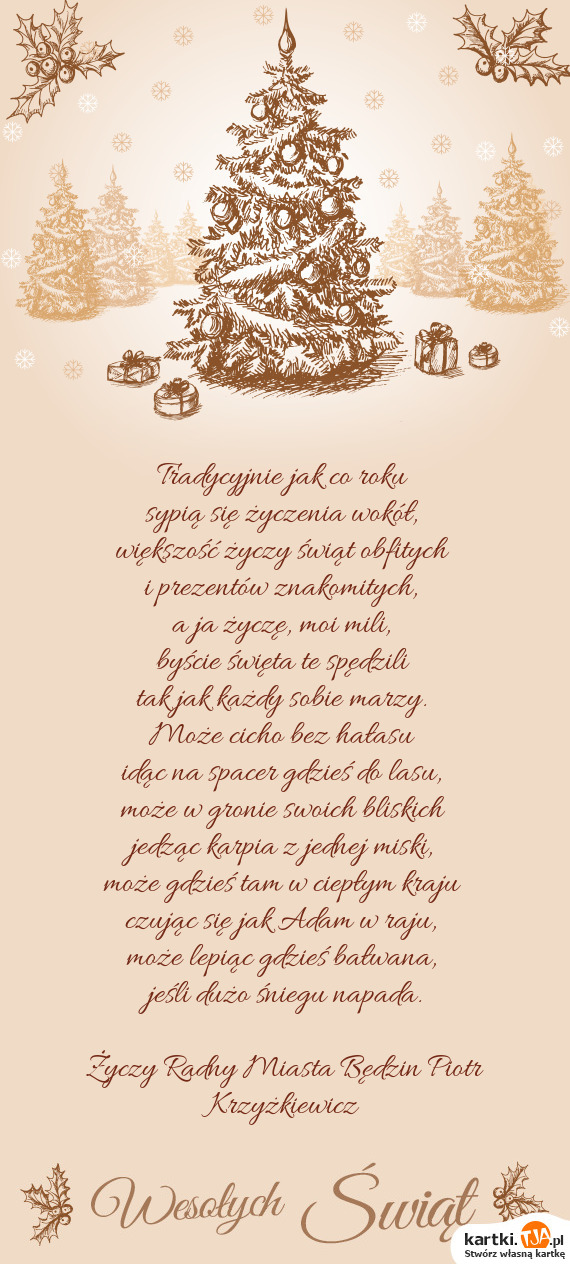 Tradycyjnie jak co roku
sypią się życzenia wokół,
większość życzy świąt obfitych
i prezentów znakomitych,
a ja życzę, moi mili,
byście święta te spędzili
tak jak każdy sobie marzy.
Może cicho bez hałasu
idąc na spacer gdzieś do lasu,
może w gronie swoich bliskich
jedząc karpia z jednej miski,
może gdzieś tam w ciepłym kraju
czując się jak Adam w raju,
może lepiąc gdzieś bałwana,
jeśli dużo śniegu napada.
Życzy Radny Miasta Będzin Piotr
Krzyżkiewicz
Wesołych Świąt
kartki.TJA.pl
Stwórz własną kartkę